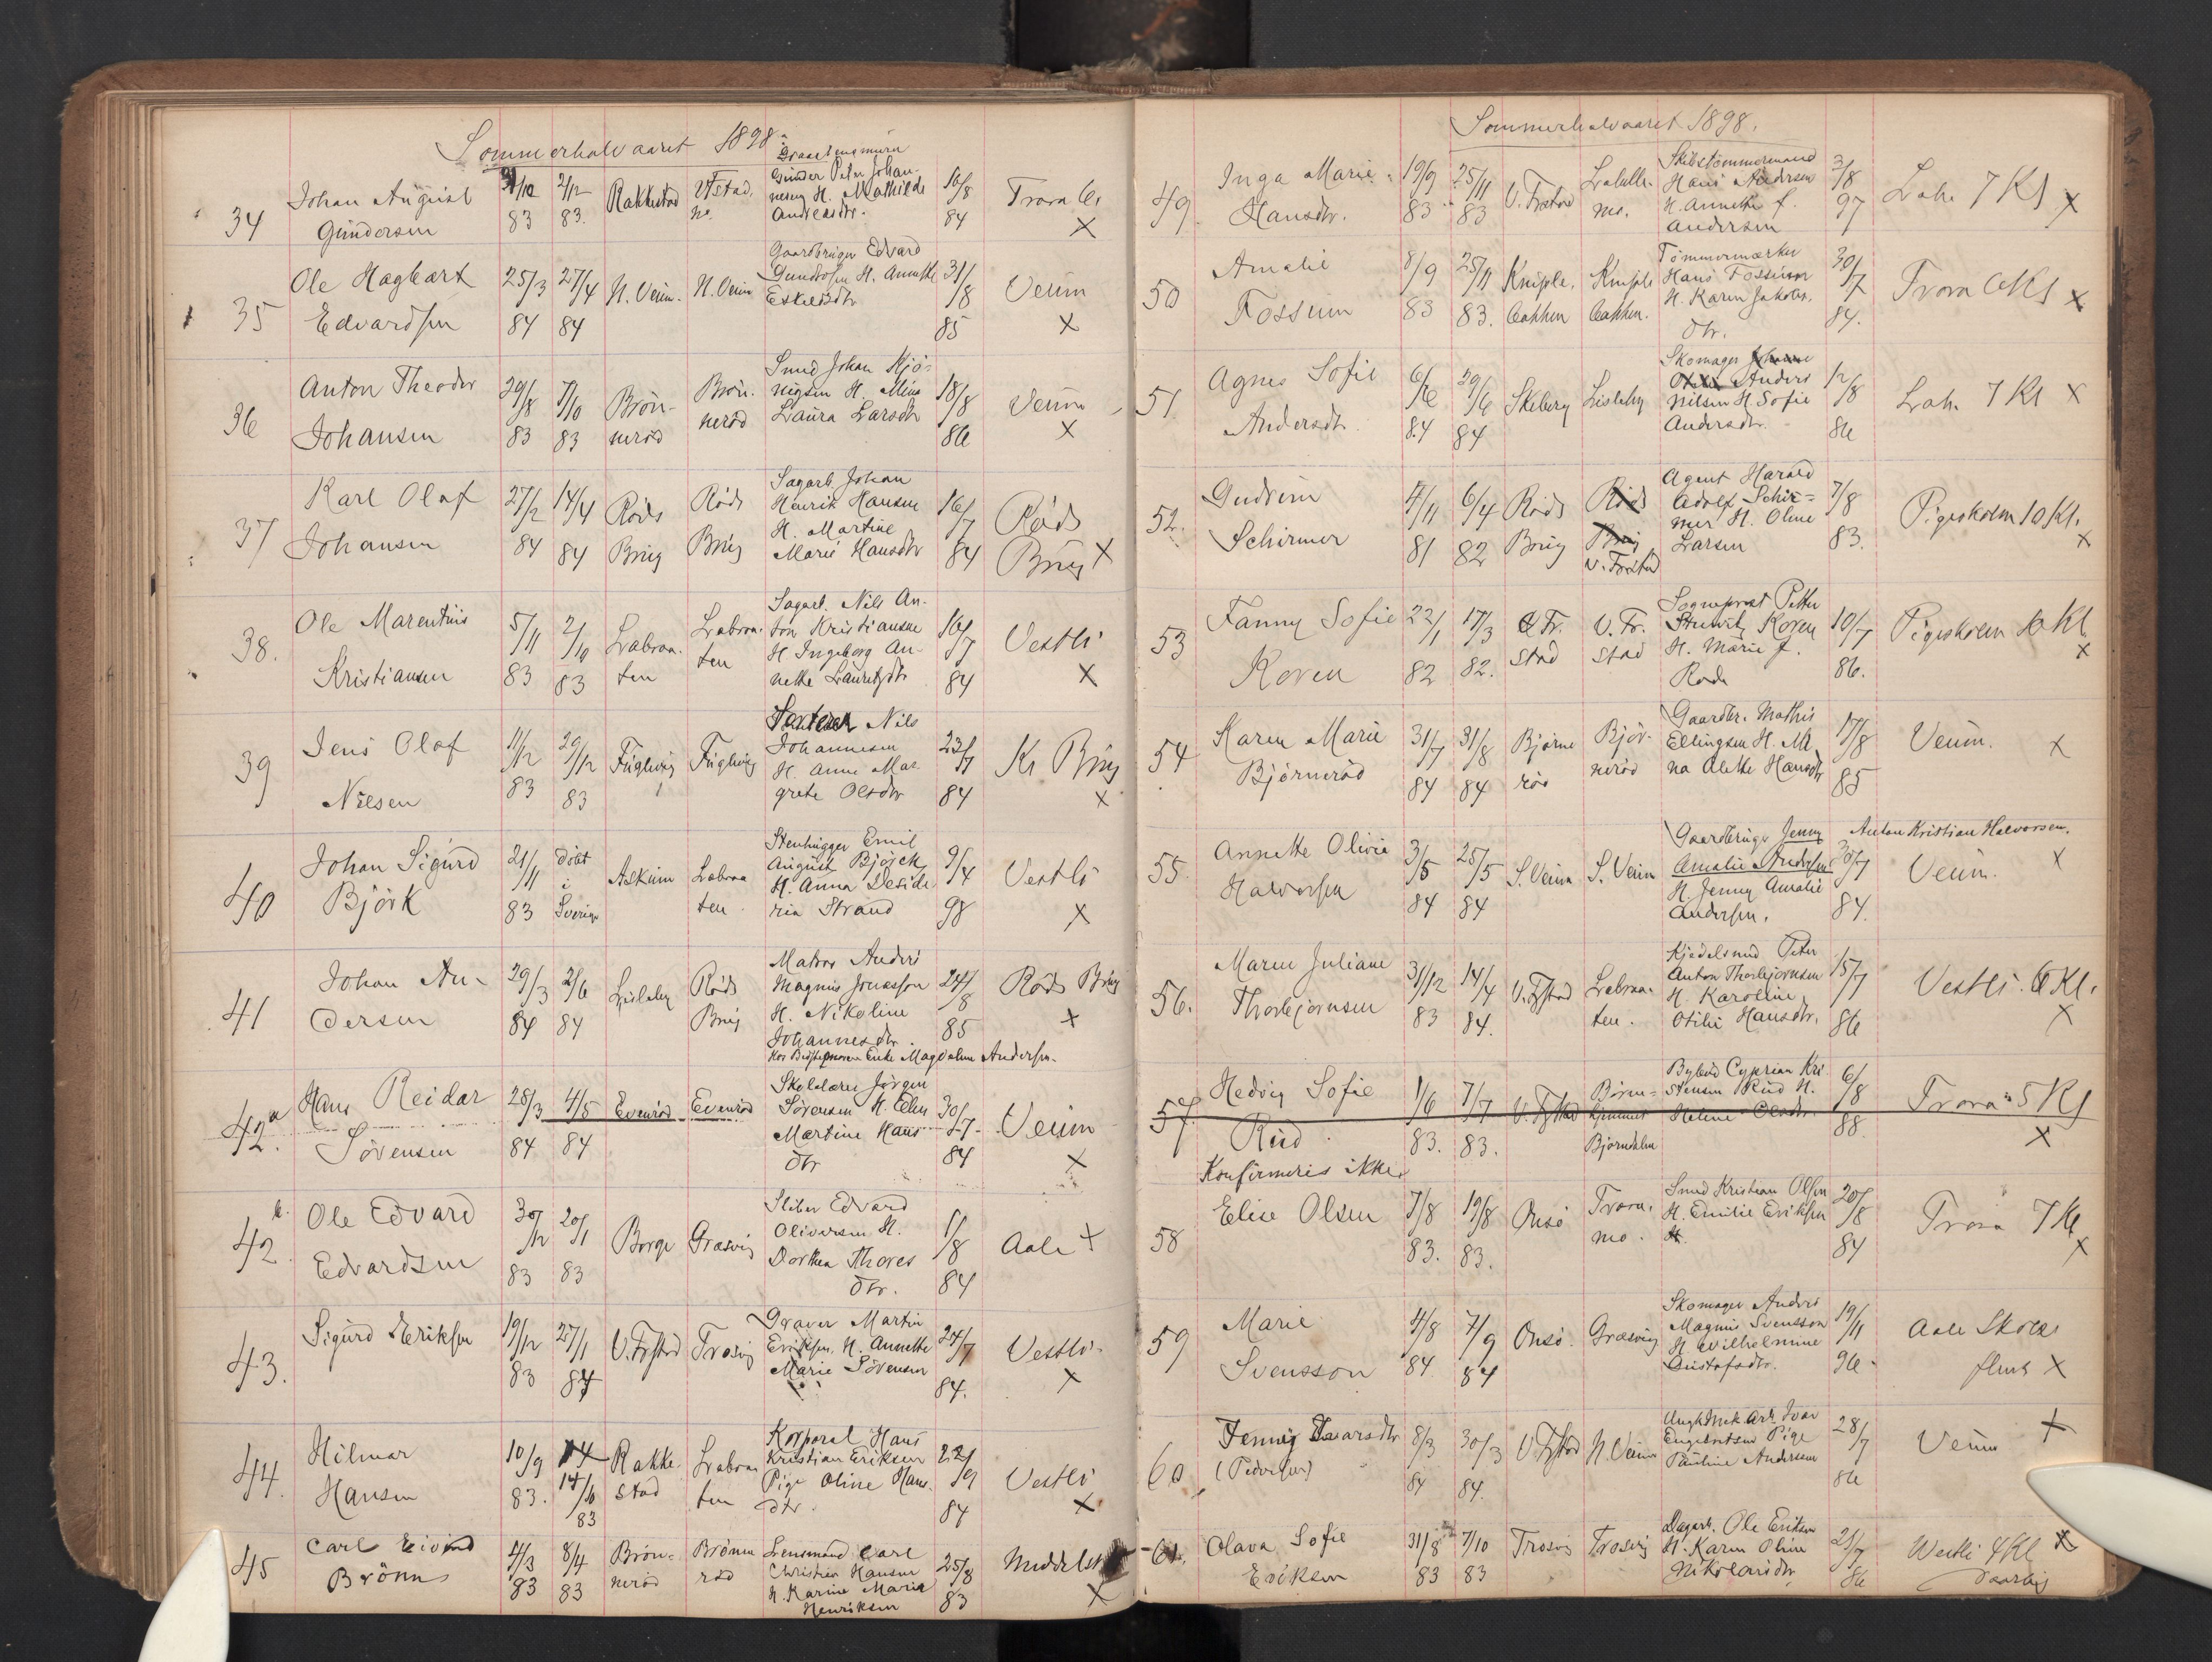 Sommerhalvaaret 1898.
34
Johan August
Gundersen
31/12
83
2/12
83.
Rakkestad
V. Fstad.
Gunder Peter Johan-
nesen H. Mathilde
Andreasdtr.
16/8
84
Trara Kl
X
35
Ole Hagbart
Edvardsen
25/3
84
27/4
84
N. Veum.
N. Veum
Gaardbruger Edvard
Gundersen H. Annette
Eskildsdtr
31/8
85
Veum
X
36
Anton Theodor
Johansen
29/8
83
7/10
83
Brön-
neröd
Brön-
neröd
Smed Johan Kjö-
nigsen H. Mina
Laura Larsdtr
18/8
86
Veum
X
37
Karl Olaf
Johansen
27/2
84
14/4
84
Röds
Brug
Röds
Brug
Sagarb. Johan
Henrik Hansen
H. Martine
Marie Hansdtr
16/7
84
Röds
Brug X
38.
Ole Marentius
Kristiansen
5/11
83
2/10
83
Labraa-
ten
Labraa-
ten
Sagarb. Nils An-
ton Kristiansen
H Ingeborg An-
nette Lauritzdtr
16/7
84
Vestli
X
39
Jens Olaf
Nilsen
11/12
83
29/12
83
Fuglevig
Fuglevig
Nils
Johannesen
H. Anne Mar-
grete Olsdtr
23/7
84
Kr Brug
X
40
Johan Sigurd
Björk
21/11
83
döbt
i
Sverige
Askim
Labraa
ten
Stenhugger Emil
August Björck
H. Anna Deside
ria Strand
9/4
98
Vestli
X
41
Johan An-
dersen
29/3
84
2/6
84
Lisleby
Röds
Brug
Matros Anders
Magnus Jonasson
H. Nikoline
Johannesdtr.
Hos Bedstemoren Enke Magdalene Andersen
24/8
85
Röds Brug
X
42 a.
Hans Reidar
Sörensen
28/3
84
4/5
84
Evenröd
Evenröd
Skolelærer Jörgen
Sörensen H. Elen
Martine Hans
dtr
30/7
84
Veum
X
42 b.
Ole Edvard
Edvardsen
30/12
83
20/1
83
Borge
Græsvig
Sliber Edvard
Oliversen H.
Dorthea Thores
dtr.
1/8
84
Aale X
43.
Sigurd Eriksen
19/12
83
27/1
84
V. Frstad
Trosvig
Graver Martin
Eriksen. H. Annette
Marie Sörensen
24/7
84.
Vestli
X
44.
Hilmar
Hansen
10/9
83.
14/10
83
Rakke-
stad
Labraa
ten
Korporal Hans
Kristian Eriksen
Pige Oline Hans-
dtr.
22/9
84
Vestli
X
45
Carl Eivind
Brönn
4/3
83
8/4
83
Brön-
neröd
Brönne
röd
Lensmand Carl
Christian Hansen
H. Karine Marie
Henriksen
25/8
83
Middelsk
X
Sommerhalvaaret 1898.
49.
Inga Marie
Hansdtr.
19/9
83
25/11
83
V. Frstad
Labelle-
mo.
Skibstömmermand
Hans Andersen
H. Annette f.
Andersen
3/8
97
Lah. 7 Kl X
50
Amalie
Fossum
8/9
83
25/11
83.
Kniple.
bakken
Kniple
bakken.
Tömmermærker
Hans Fossum
H. Karen Jakobs.
dtr.
30/7
84.
Trara 6 Kl X
51
Agnes Sofie
Andersdtr.
6/6
84
29/6
84
Skeberg
Lisleby
Skomager
Anders
Nilsen H Sofie
Andersdtr.
12/8
86
Lah. 7 Kl X
52.
Gudrun
Schirmer
4/11
81
6/4
82
Röds
Brug
Röds
Brug
V. Frstad
Agent Harald
Adolf Schir-
mer H. Oline
Larsen
7/8
83.
Pigeskolen 10 Kl.
X
53
Fanny Sofie
Koren
22/1
82
17/3
82.
V. Fr.
stad
V. Fr.
stad
Sogneprest Petter
Koren
H. Marie f.
Rode
10/7
86.
Pigeskolen Kl
X
54
Karen Marie
Björneröd
31/7
84
31/8
84
Björne
röd
Björ-
neröd
Gaardbr. Mathis
Ellingsen H. Mi
na Alette Hansdtr
17/8
85
Veum.
X
55.
Annette Olivia
Halvorsen
3/5
84
25/5
84
S. Veum
S. Veum
Gaardbruger Jenny
Amalie Andersen
Anton Kristian Halvorsen.
H. Jenny Amalie
Andersen.
30/7
84.
Veum.
X
56.
Maren Juliane
Thorbjørnsen
31/12
83
14/4
84.
V. Frstad
Labraa-
ten.
Kjedelsmed Peter
Anton Thorbjørnsen
H. Karoline
Otilie Hansdtr.
15/7
86
Vestli. 6 Kl.
X
57
Hedvig Sofie
Rud
Konfirmeres ikke
1/6
83.
7/7
83.
V. Frstad
Björndalen
Bybud Cyprian Kri
stensen Rud H.
Helene Olsdtr.
6/8
88
Trara 5 Kl
X
58
Elise Olsen
7/8
83.
19/8
83.
Onsö
Trara.
mo.
Smed Kristian Olsen
H. Emilie Eriksen
20/8
84
Trara 7 Kl
X
59
Marie
Svensson
4/8
84
7/9
84
Onsö.
Græsvig
Skomager Anders
Magnus Svensson
H Wilhelmine
Gustafsdtr.
19/11
96
Aale Skoles
X
60
Jenny Ivarsdtr
(Pedersen)
8/3
84
30/3
84.
V. Frstad
N. Veum
Ungk. Arb. Ivar
Engebretsen Pige
Pauline Andersen
28/7
86
Veum
X
61.
Olava Sofie
Eriksen
31/8
83
7/10
83
Trosvig
Trosvig
Dagarb. Ole Eriksen
H. Karen Oline
Nikolaisdtr
23/7
86
Westli 4 Kl X
daarlig